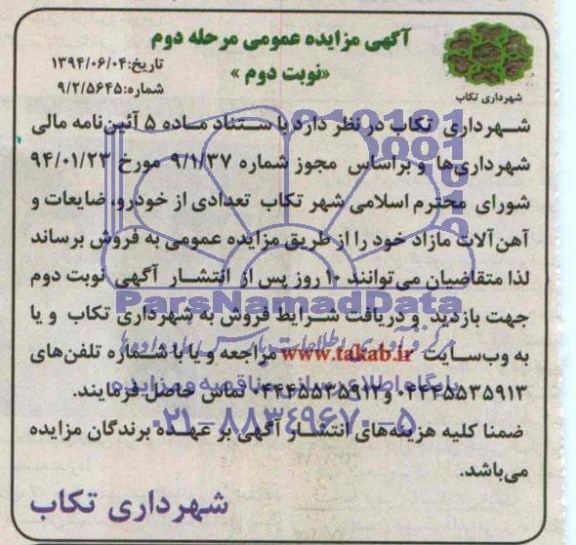 آگهی مزایده عمومی مرحله دوم
«نوبت دوم»
تاریخ:۱۳۹۴/۰۶/۰۴
شماره:۹/۲/۵۶۴۵
شهرداری تکاب
شهرداری تکاب در نظر دارد با ستناد ماده ۵ آئین‌نامه مالی
شهرداری‌ها و براساس مجوز شماره ۹/۱/۳۷ مورخ ۹۴/۰۱/۲۳
شورای محترم اسلامی شهر تکاب تعدادی از خودرو، ضایعات و
آهن‌آلات مازاد خود را از طریق مزایده عمومی به فروش برساند
لذا متقاضیان می‌توانند ۱۰ روز پس از انتشار آگهی نوبت دوم
جهت بازدید و دریافت شرایط فروش به شهرداری تکاب و یا
به وب‌سایت www.takab.ir مراجعه و یا با شماره تلفن‌های
۰۴۴۴۵۵۳۵۹۱۳ و ۰۴۴۴۵۵۲۵۹۱۲ تماس حاصل فرمایند.
ضمنا کلیه هزینه‌های انتشار آگهی بر عهده برندگان مزایده
می‌باشد.
شهرداری تکاب
ParsNamadData
پایگاه اطلاع رسانی مناقصه و مزایده
۰۲۱-۸۸۳۴۹۶۷۰-۵